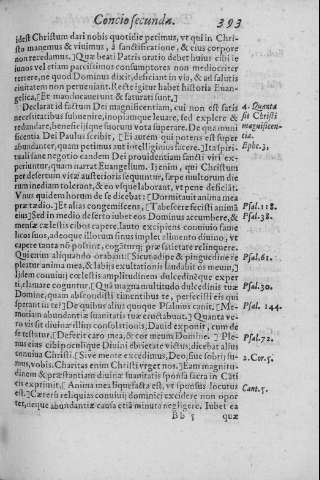 Concio secundæ. 393
idest Christum dari nobis quotidie petimus, vt qui in Chri-
sto manemus & viuimus, à sanctificatione, & eius corpore
non recedamus.] Quæ beati Patris oratio debet huius cibi ie
iunos vel etiam parcissimos consumptores non mediocriter
terrere, ne quod Dominus dixit, deficiant in via, & ad salutis
ciuitatem non perueniant. Recte igitur habet historia Euan-
gelica, [Et manducauerunt & saturati sunt.]
Declarat id factum Dei magnificentiam, cui non est satis
necessitatibus subuenire, inopiamque leuare, sed explere &
redundare, beneficijsque suorum vota superare. De qua muni
ficentia Dei Paulus scribit, [Ei autem qui potens est super
abundanter, quam petimus aut intelligimus facere.] Ita spiri-
tuali sane negotio eandem Dei prouidentiam sancti viri ex-
periuntur, quam narrat Euangelium. Ijenim, qui Christum
per desertum vitæ austerioris sequuntur, sæpe multorum die
rum inediam tolerant, & eo vsque laborant, vt pene deficiāt.
Vnus quidem horum de se dicebat: [Dormitauit anima mea
præ tædio.] Et alias congemiscens, [Tabescere fecisti animā
eius] Sed in medio deserto iubet eos Dominus accumbere, &
mensæ cælestis cibos capere, lauto excipiens conuiuio fame
licos suos, adeoque illorum sinus implet alimento diuino, vt
capere tanta nō possint, cogāturq; præ satietate relinquere.
Quorum aliquando orabant: [Sicut adipe & pinguedine re
pleatur anima mea, & labijs exultationis laudabit os meum.]
Ijdem conuiuij cælestis amplitudinem dulcedinéque exper
ti, clamare coguntur, [Quā magna multitudo dulcedinis tuæ
Domine, quam abscondisti timentibus te, perfecisti eis qui
sperant in te!] De quibus alius quoque Psalmus canit, [Me-
moriam abundantiæ suauitatis tuæ eructabunt.] Quanta ve-
ro vis sit diuinæ illius consolationis, Dauid exponit, cum de
se testatur, [Defecit caro mea, & cor meum Domine.] Ple-
nus eius cibi poculique Diuini ebrietate victus, dicebat alius
conuiua Christi [Siue mente excedimus, Deo, siue sobrij su-
mus, vobis. Charitas enim Christi vrget nos.] Eam magnitu-
dinem & præstantiam diuinæ suauitatis sponsa sacra in Cāti
cis exprimit, [Anima mea liquefacta est, vt sponsus locutus
est.] Cæterū reliquias conuiuij dominici excidere non opor
tet, neque abundantiæ causa etiā minuto negligere. Iubet ea
Bb 5 quæ
4. Quanta
sit Christi
magnificen-
tia.
Ephe. 3.
Psal. 118.
Psal. 38.
Psal. 62.
Psal. 30.
Psal. 144.
Psal. 72.
2. Cor. 5.
Cant. 5.